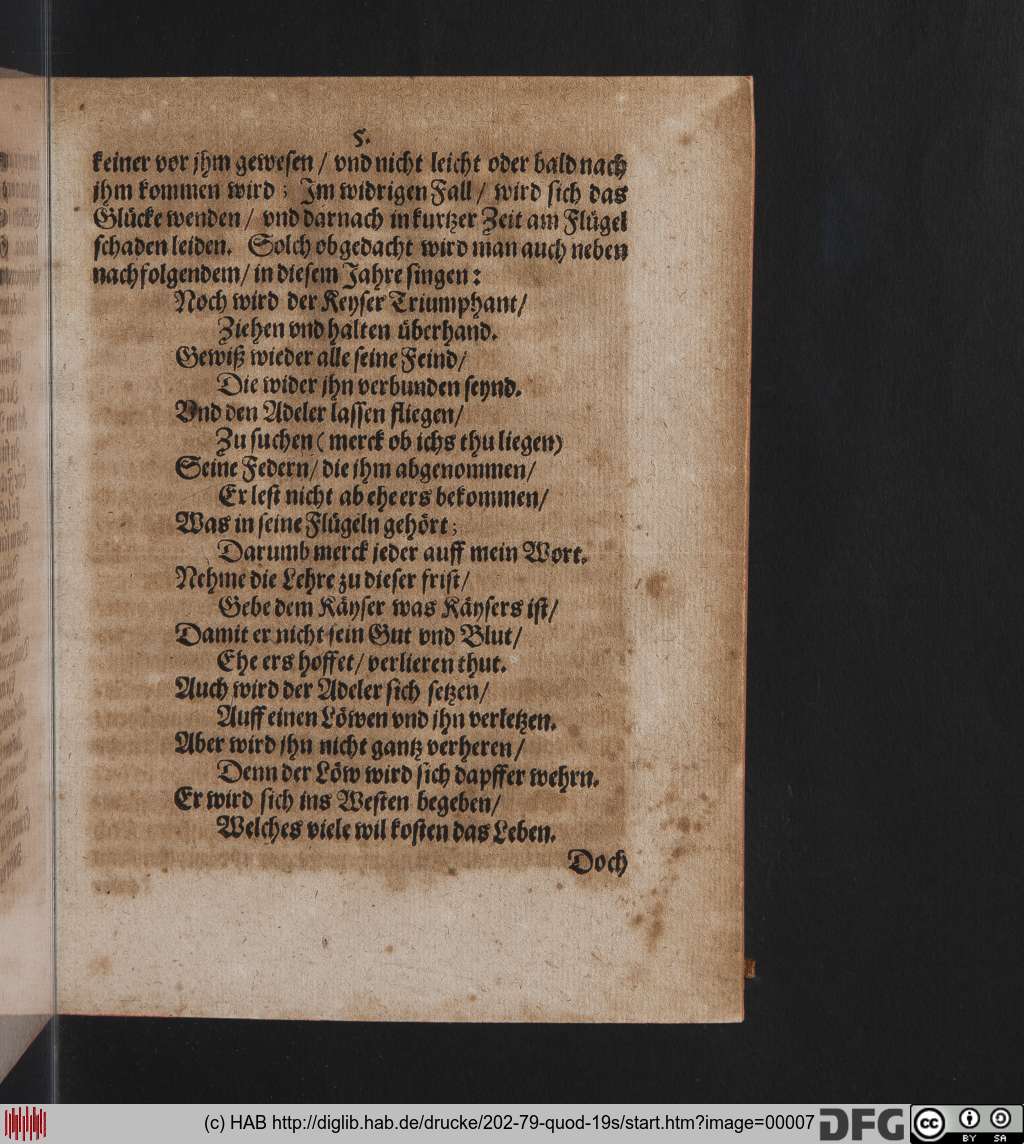 5.
keiner vor jhm gewesen / vnd nicht leicht oder bald nach
jhm kommen wird ; Im widrigen Fall / wird sich das
Glücke wenden / vnd darnach in kurtzer Zeit am Flügel
schaden leiden. Solch obgedacht wird man auch neben
nachfolgendem / in diesem Jahre singen :
Noch wird der Keyser Triumphant /
Ziehen vnd halten überhand.
Gewiß wieder alle seine Feind /
Die wider jhn verbunden seynd.
Vnd den Adeler lassen fliegen /
Zu suchen ( merck ob ichs thu liegen )
Seine Federn / die jhm abgenommen /
Er lest nicht ab ehe ers bekommen /
Was in seine Flügeln gehört ;
Darumb merck jeder auff mein Wort.
Nehme die Lehre zu dieser frist /
Gebe dem Käyser was Käysers ist /
Damit er nicht sein Gut vnd Blut /
Ehe ers hoffet / verlieren thut.
Auch wird der Adeler sich setzen /
Auff einen Löwen vnd jhn verletzen.
Aber wird jhn nicht gantz verheren /
Denn der Löw wird sich dapffer wehrn.
Er wird sich ins Westen begeben /
Welches viele wil kosten das Leben.
Doch
(c) HAB http://diglib.hab.de/drucke/202-79-quod-19s/start.htm?image=00007
DFG
cc BY SA